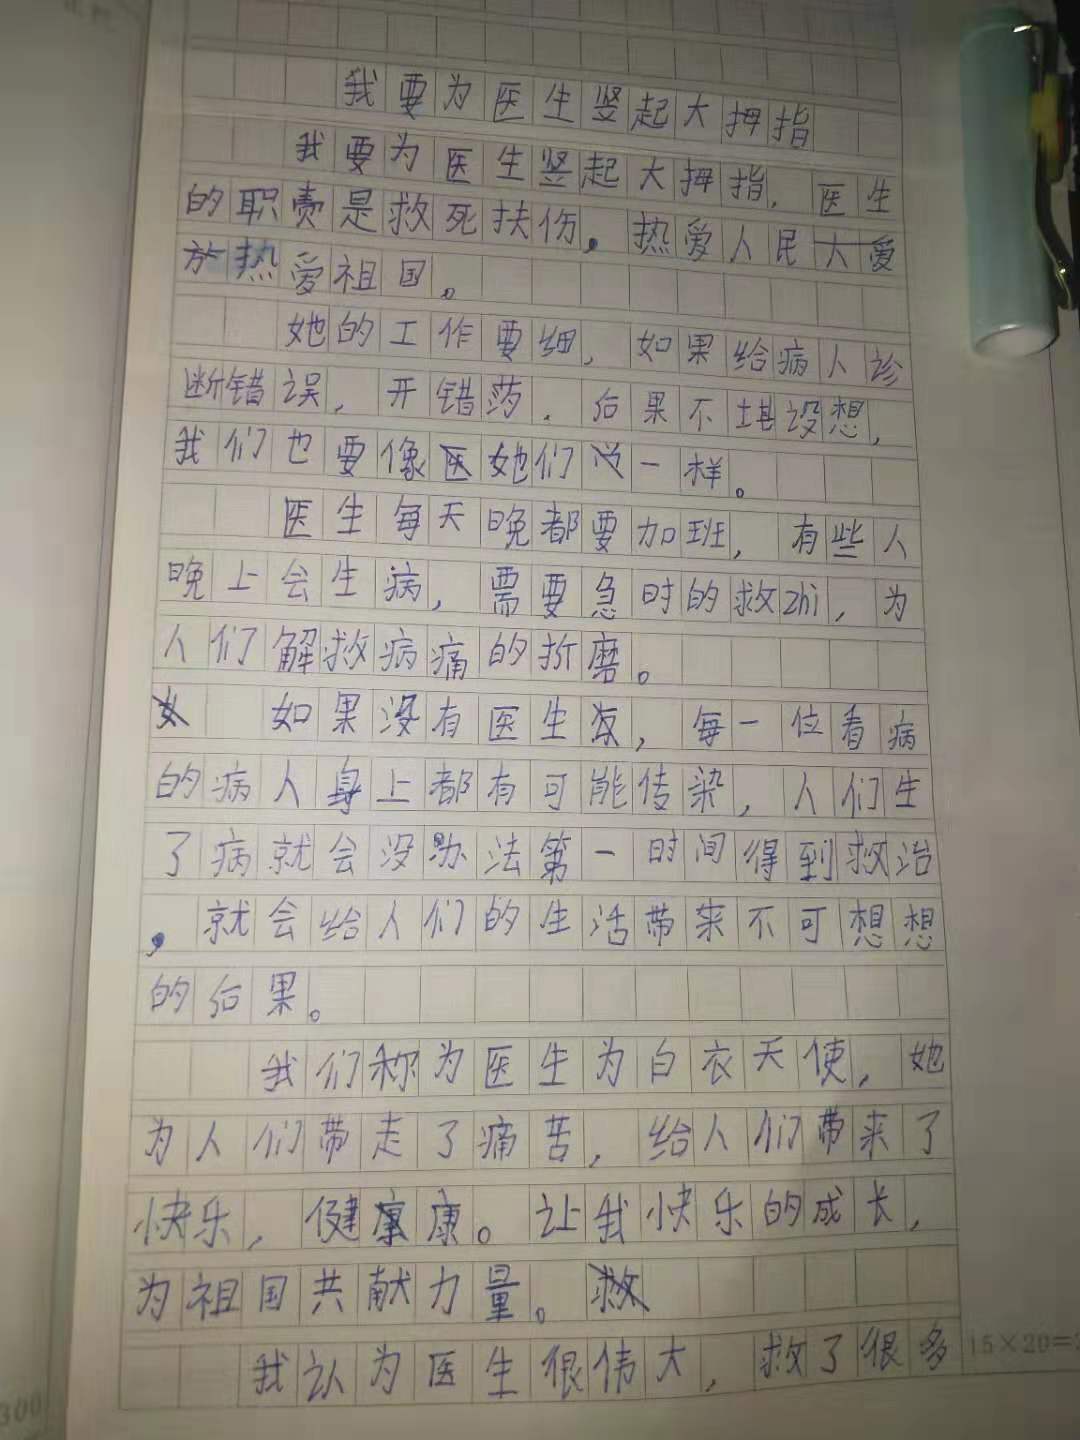 我要为医生竖起大拇指
我要为医生竖起大拇指，医生
的职责是救死扶伤。热爱人民大爱
热爱祖国。
她的工作要细，如果给病人诊
断错误，开错药，后果不堪设想，
我们也要像医她们一样。
医生每天晚都要加班，有些人
晚上会生病，需要急时的救zhi，为
人们解救病痛的折磨。
女 如果没有医生，每一位看病
的病人身上都有可能传染，人们生
了病就会没办法第一时间得到救治
，就会给人们的生活带来不可想想
的后果。
我们称为医生为白衣天使，她
为人们带走了痛苦，给人们带来了
快乐，健康康。让我快乐的成长，
为祖国共献力量。救
我认为医生很伟大，救了很多
15×20=
300